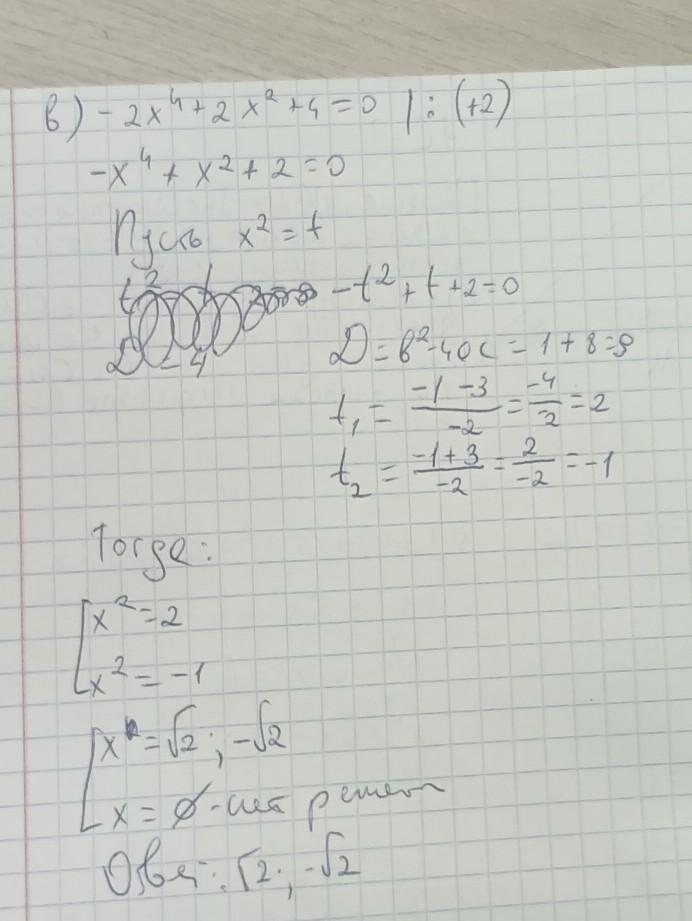 в) -2x⁴ + 2x² + 4 = 0 | : (+2)
-x⁴ + x² + 2 = 0
Пусть x² = t
-t² + t + 2 = 0
D = b² - 4ac = 1 + 8 = 9
t₁ = (-1 - 3)/(-2) = (-4)/(-2) = 2
t₂ = (-1 + 3)/(-2) = 2/(-2) = -1
Тогда:
[ x² = 2
x² = -1
[ x = √2 ; -√2
x = ∅ - нет решен
Ответ: √2 ; -√2